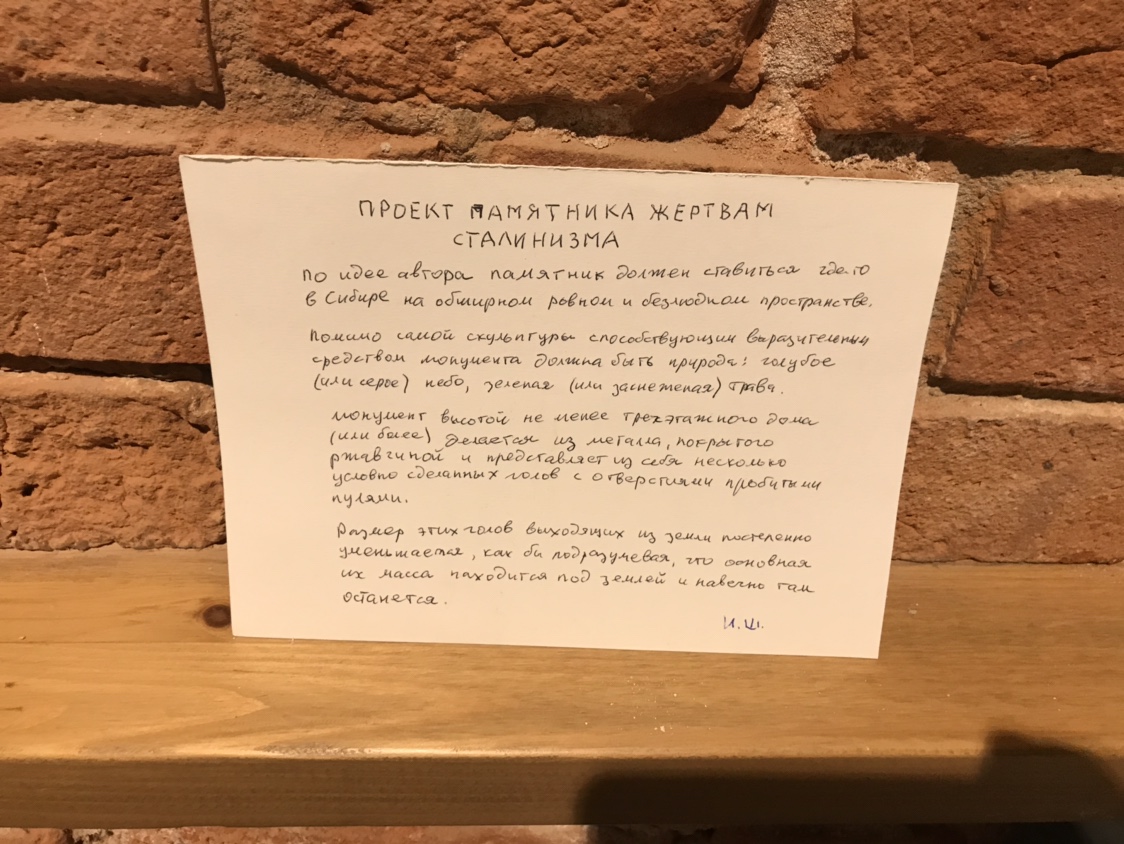 ПРОЕКТ ПАМЯТНИКА ЖЕРТВАМ
СТАЛИНИЗМА
По идее автора памятник должен ставиться где-то
в Сибире на обширном ровном и безлюдном пространстве.
Помимо самой скульптуры способствующим выразительным
средством монумента должна быть природа: голубое
(или серое) небо, зеленая (или заснеженая) трава.
Монумент высотой не менее трехэтажного дома
(или более) делается из металла, покрытого
ржавчиной и представляет из себя несколько
условно сделанных голов с отверстиями пробитыми
пулями.
Размер этих голов выходящих из земли постепенно
уменьшается, как бы подразумевая, что основная
их масса находится под землей и навечно там
останется.
И.Ш.